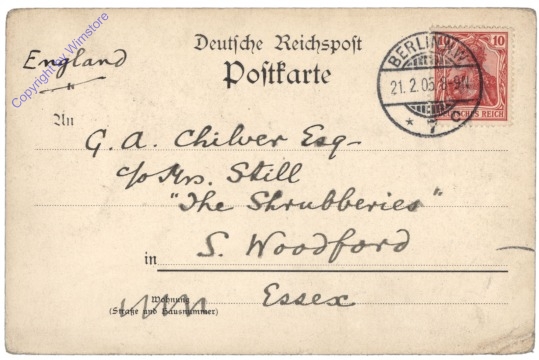 England
Copyright by Wimstore
Deutsche Reichspost
Postkarte
BERLIN N.W.
21.2.05 8-9N.
* 7 c
10
An
G. A. Chilver Esq-
c/o Mrs. Still
"The Shrubberies"
in S. Woodford
Essex
Wohnung
(Straße und Hausnummer)